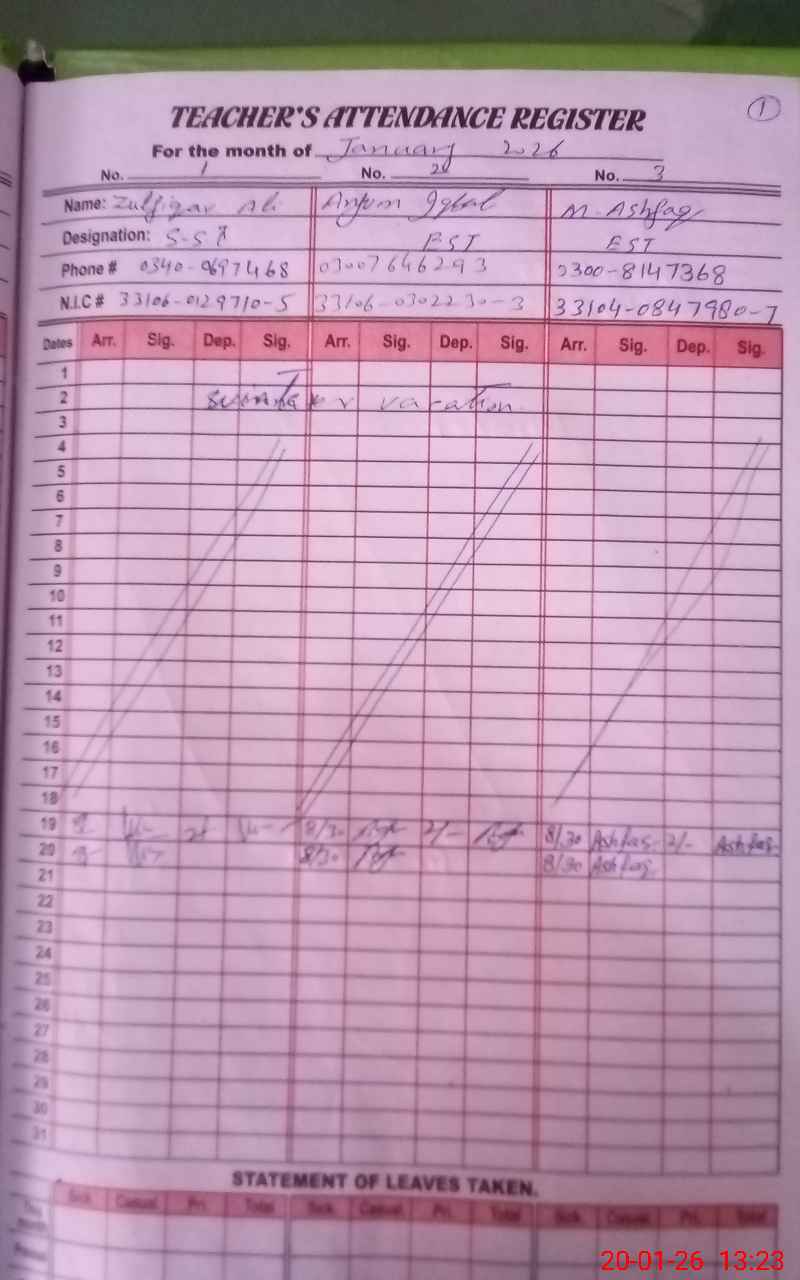 1
TEACHER'S ATTENDANCE REGISTER
For the month of January 2026
No. 1 No. 2 No. 3
Name: Zulfiqar Ali Anjum Iqbal M. Ashfaq
Designation: S.S.T EST EST
Phone # 0340-0697468 03007646293 0300-8147368
N.I.C # 33106-0129710-5 33106-0302230-3 33104-0847980-7
Dates Arr. Sig. Dep. Sig. Arr. Sig. Dep. Sig. Arr. Sig. Dep. Sig.
1
2 vacation
3
4
5
6
7
8
9
10
11
12
13
14
15
16
17
18
19 8/30 2/- 8/30 Ashfaq 2/- Ashfaq
20 8/30 8/30 Ashfaq
21
22
23
24
25
26
27
28
29
30
31
STATEMENT OF LEAVES TAKEN.
Sick. Casual. Pri. Total Sick. Casual. Pri. Total Sick. Casual. Pri. Total
This Month
20-01-26 13:23